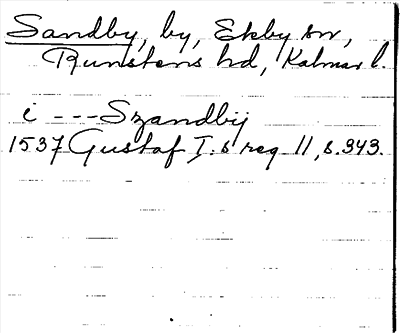 Sandby, by, Ekby sn,
Runstens hd, Kalmar l.
i --- Szandbij
1537 Gustaf I:s reg 11, s. 343.